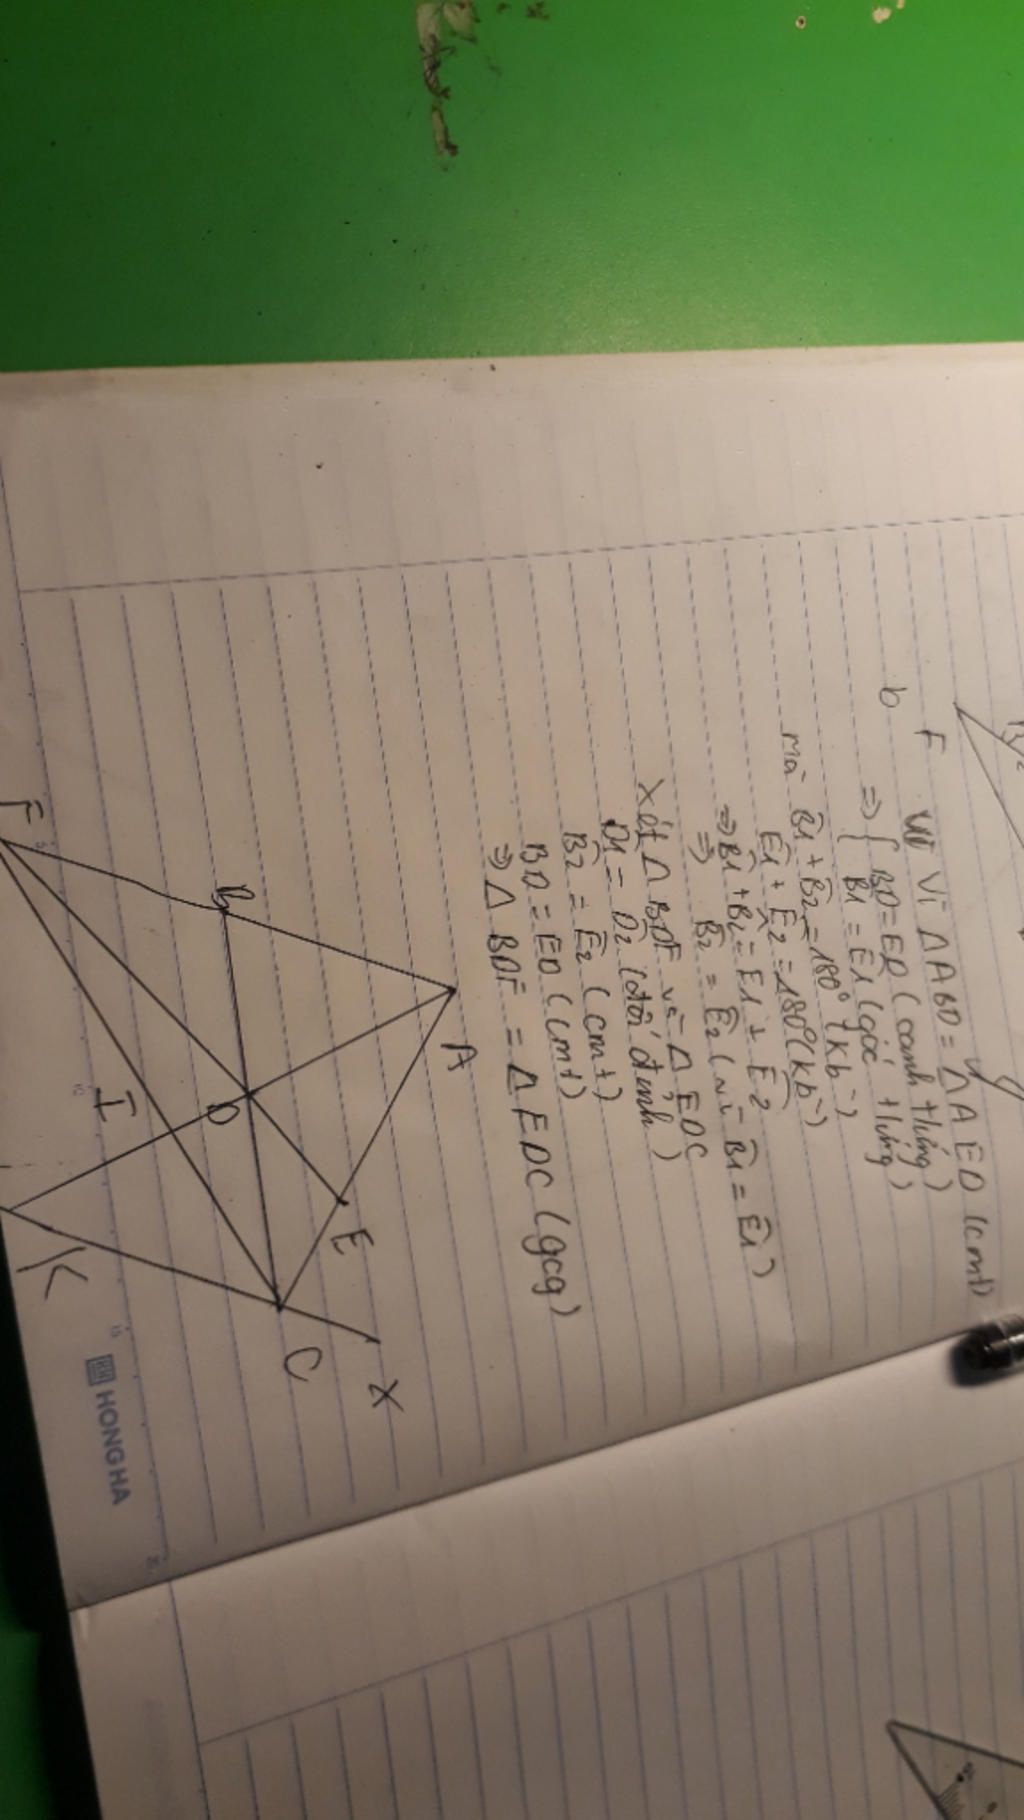 b
F Vì ΔABD = ΔAED (cmt)
⇒ { BD = ED (cạnh tứng)
B̂1 = Ê1 (góc tứng)
mà B̂1 + B̂2 = 180° (kb)
Ê1 + Ê2 = 180° (kb)
⇒ B̂1 + B̂2 = Ê1 + Ê2
⇒ B̂2 = Ê2 (vì B̂1 = Ê1)
Xét Δ BDF và Δ EDC
D̂1 = D̂2 (đối đỉnh)
B̂2 = Ê2 (cmt)
BD = ED (cmt)
⇒ Δ BDF = Δ EDC (gcg)
A
B
E
D
C
X
I
F
K
HONG HA